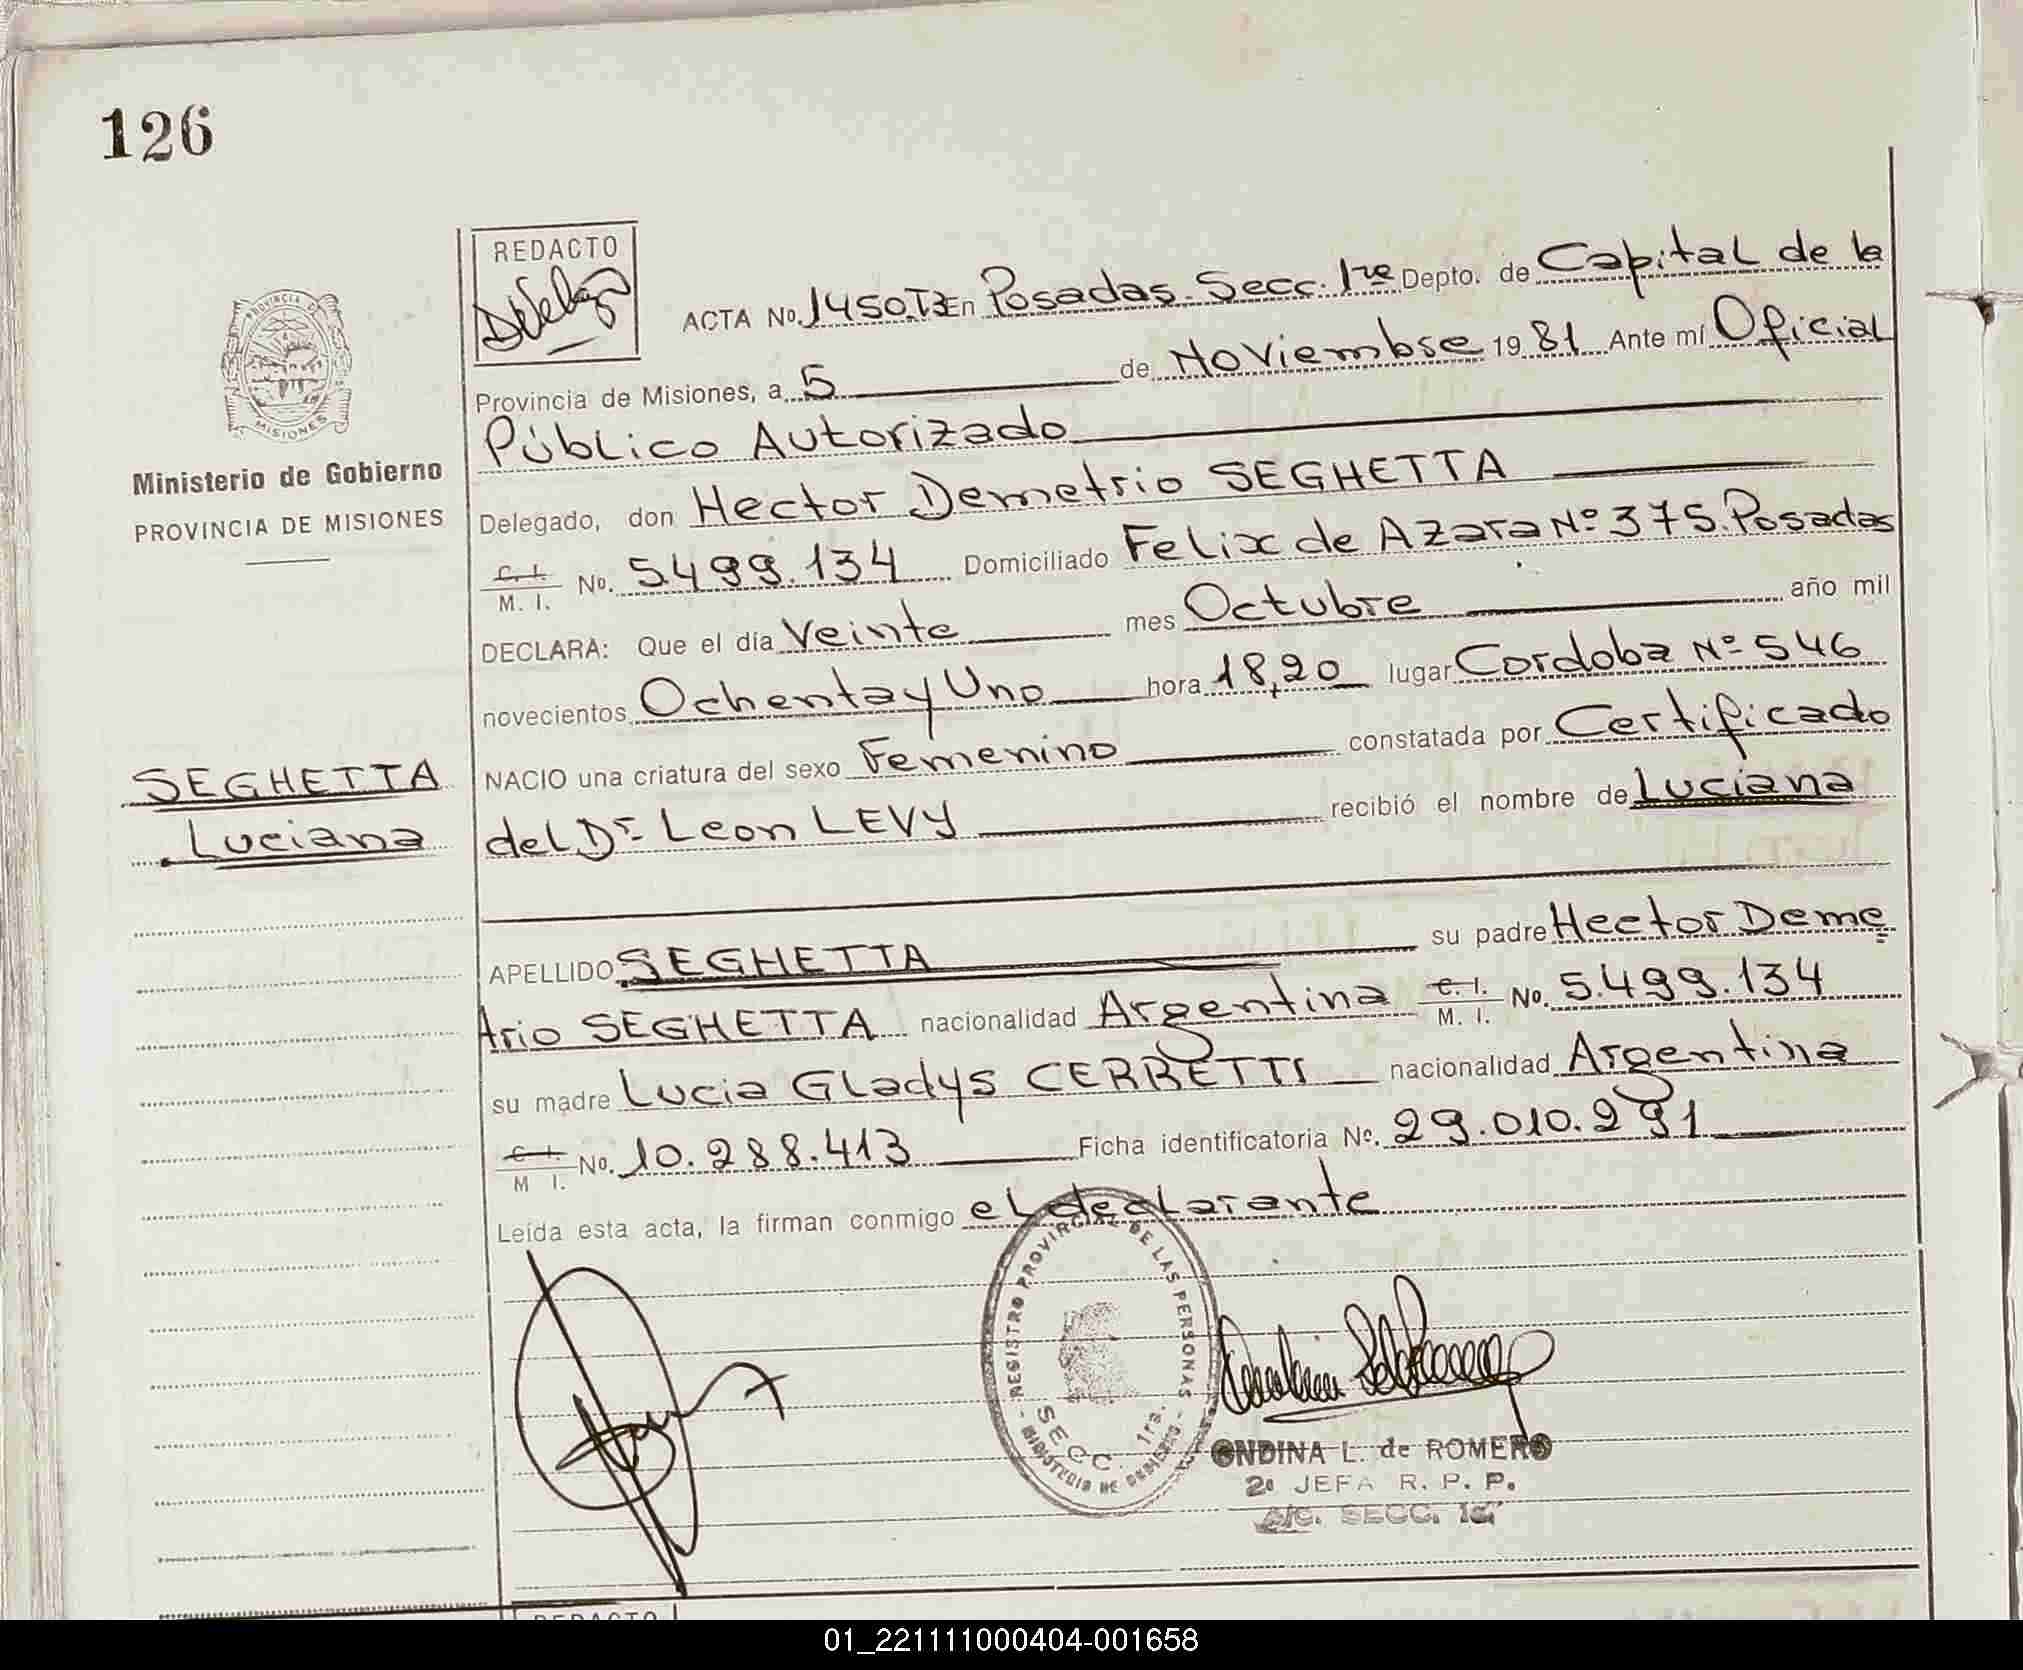 126
REDACTO
PROVINCIA DE
MISIONES
Ministerio de Gobierno
PROVINCIA DE MISIONES
SEGHETTA
Luciana
ACTA No. 1450.T3 En Posadas. Secc. 1ra Depto. de Capital de la
Provincia de Misiones, a 5 de Noviembre 19 81 Ante mí Oficial
Público Autorizado
Delegado, don Hector Demetrio SEGHETTA
C. I. M. I. No. 5.499.134 Domiciliado Felix de Azara Nº 375. Posadas
DECLARA: Que el día Veinte mes Octubre año mil
novecientos Ochenta y Uno hora 18,20 lugar Cordoba Nº 546
NACIO una criatura del sexo Femenino constatada por Certificado
del Dr. Leon LEVY recibió el nombre de Luciana
APELLIDO SEGHETTA su padre Hector Deme
trio SEGHETTA nacionalidad Argentina C. I. M. I. No. 5.499.134
su madre Lucia Gladys CERBETTI nacionalidad Argentina
C. I. M I. No. 10.288.413 Ficha identificatoria Nº. 29.010.291
Leída esta acta, la firman conmigo el declarante
REGISTRO PROVINCIAL DE LAS PERSONAS
SECC. 1ra.
MINISTERIO DE GOBIERNO
ONDINA L. de ROMERO
2a JEFA R. P. P.
A/C. SECC. 1a
REDACTO
01_221111000404-001658